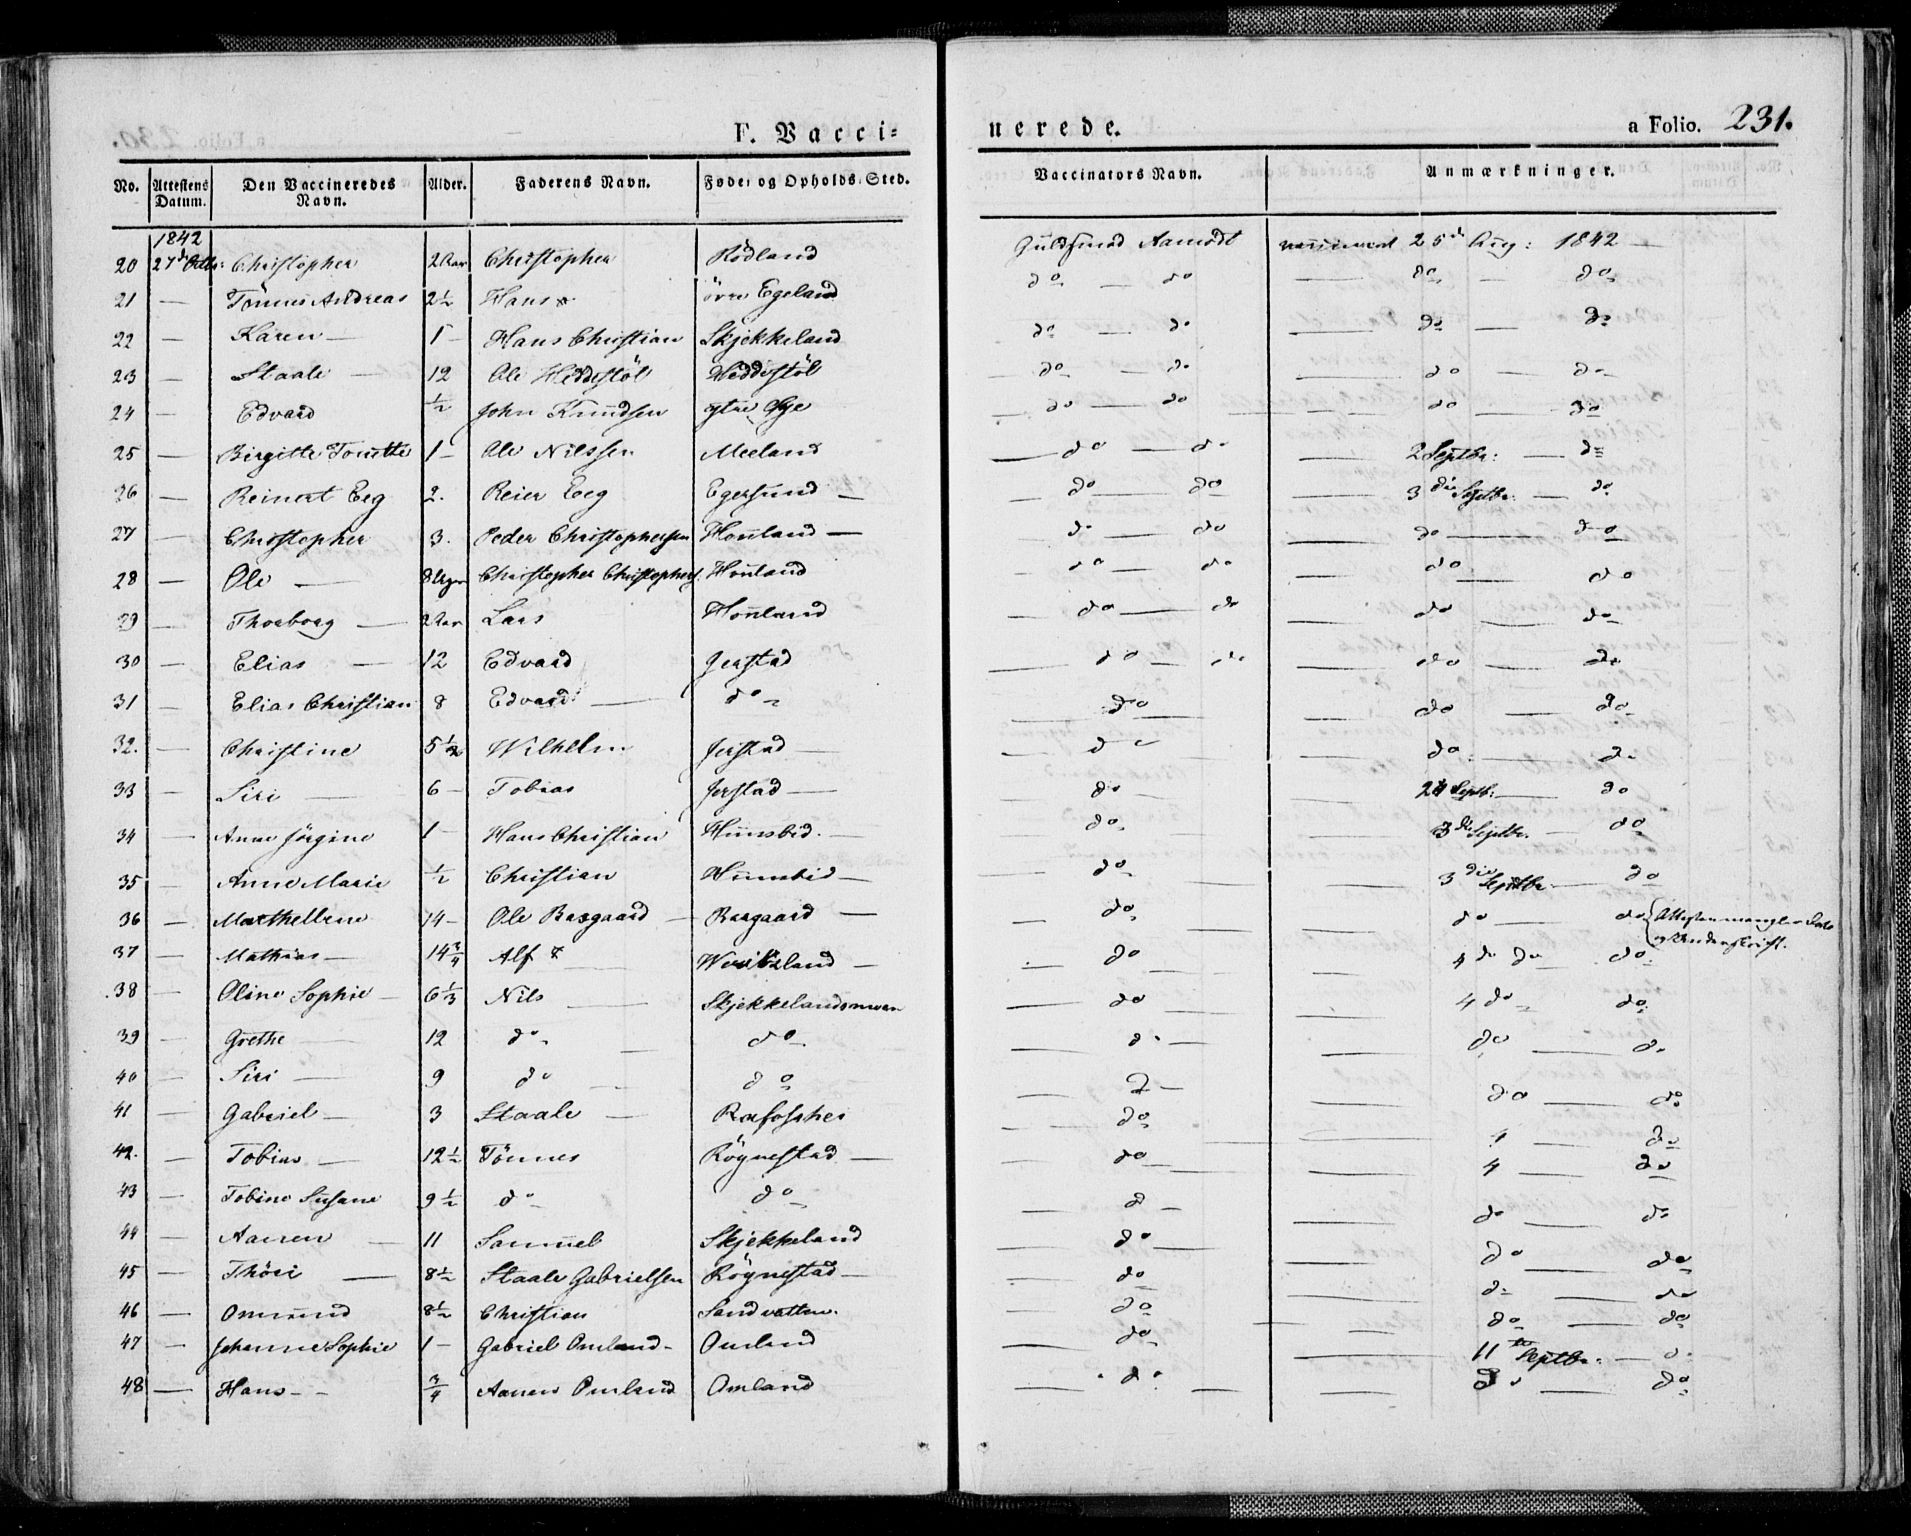 F. Vacci-
nerede.
a Folio. 231.
No. Attestens Datum. Den Vaccineredes Navn. Alder. Faderens Navn. Føde- og Opholds-Sted. Vaccinators Navn. Anmærkninger.
1842
20 27de Christopher 2 Aar Christopher Rödland Guldsmed Aamodt vaccineret 25de Aug: 1842
21 — Tönnes Andreas 2½ Hans övre Egeland do — do — do do
22 — Karen — 1 — Hans Christian Skjekkeland do — do — do — do
23 — Staale — 12 Ole Heddestöl Heddestöl — do — do — do — do
24 — Edvard ½ John Knudsen ytre Øye — do — do — do — do
25 — Birgitte Tomette 1 — Ole Nilssen Meeland — do — do — 2 Septbr: — do
26 — Reinert Eeg 2. Reier Eeg Egersund — — do — do — 3die Septbr. — do
27 — Christopher 3. Peder Christophersen Homland — — do — do — do — do
28 — Ole — 8 Uger Christopher Christophers. Homland — do — do — do — do
29 — Thorborg — 2 Aar Lars Homland — do — do — do — do
30 — Elias — 12 Edvard Jerstad — do — do — do — do
31 — Elias Christian 8 Edvard — do — do — do — do
32. — Christine 5½ Wilhelm Jerstad — — do — do — do
33 — Siri — 6 — Tobias Jerstad — — do — 24 Septb: — do
34 — Anne Jörgine 1 — Hans Christian Hunsbed. — — do — 3die Septbr. — do
35 — Anne Marie ½ Christian Hunsbed — — do — 3die Septbr. — do
36 — Marthellene 14 — Ole Baagaard — Baagaard — — do — do — do { Attesten mangler Dato
og Underskrift.
37 — Mathias — 14¾ Alf — — — do — 4de do — do
38 — Oline Sophie — 6⅓ Nils — Skjekkelandsmoen — do — 4 do — do
39 — Grethe — 12 do — do — do — — do — do
40 — Siri — 9 do — do — do — — do — do
41 — Gabriel — 3 Staale — Rafoshei — do — 4 — do
42. — Tobias — 12½ Tönnes Rögnestad — — do — — 4 — do
43 — Tobine Susane 9½ do do — do — — do — do
44 — Aanen — 11 Samuel Skjekkeland — do — — do — do
45 — Thöri — 8½ Staale Gabrielsen Rögnestad — — do — do — do
46 — Ommund 8½ Christian Sandvatten. — do — do — do
47 — Johanne Sophie 1 — Gabriel Omland — Omland — do — 11te Septbr: — do
48 — Hans — ¾ Aanen Omland Omland — do — — do — do